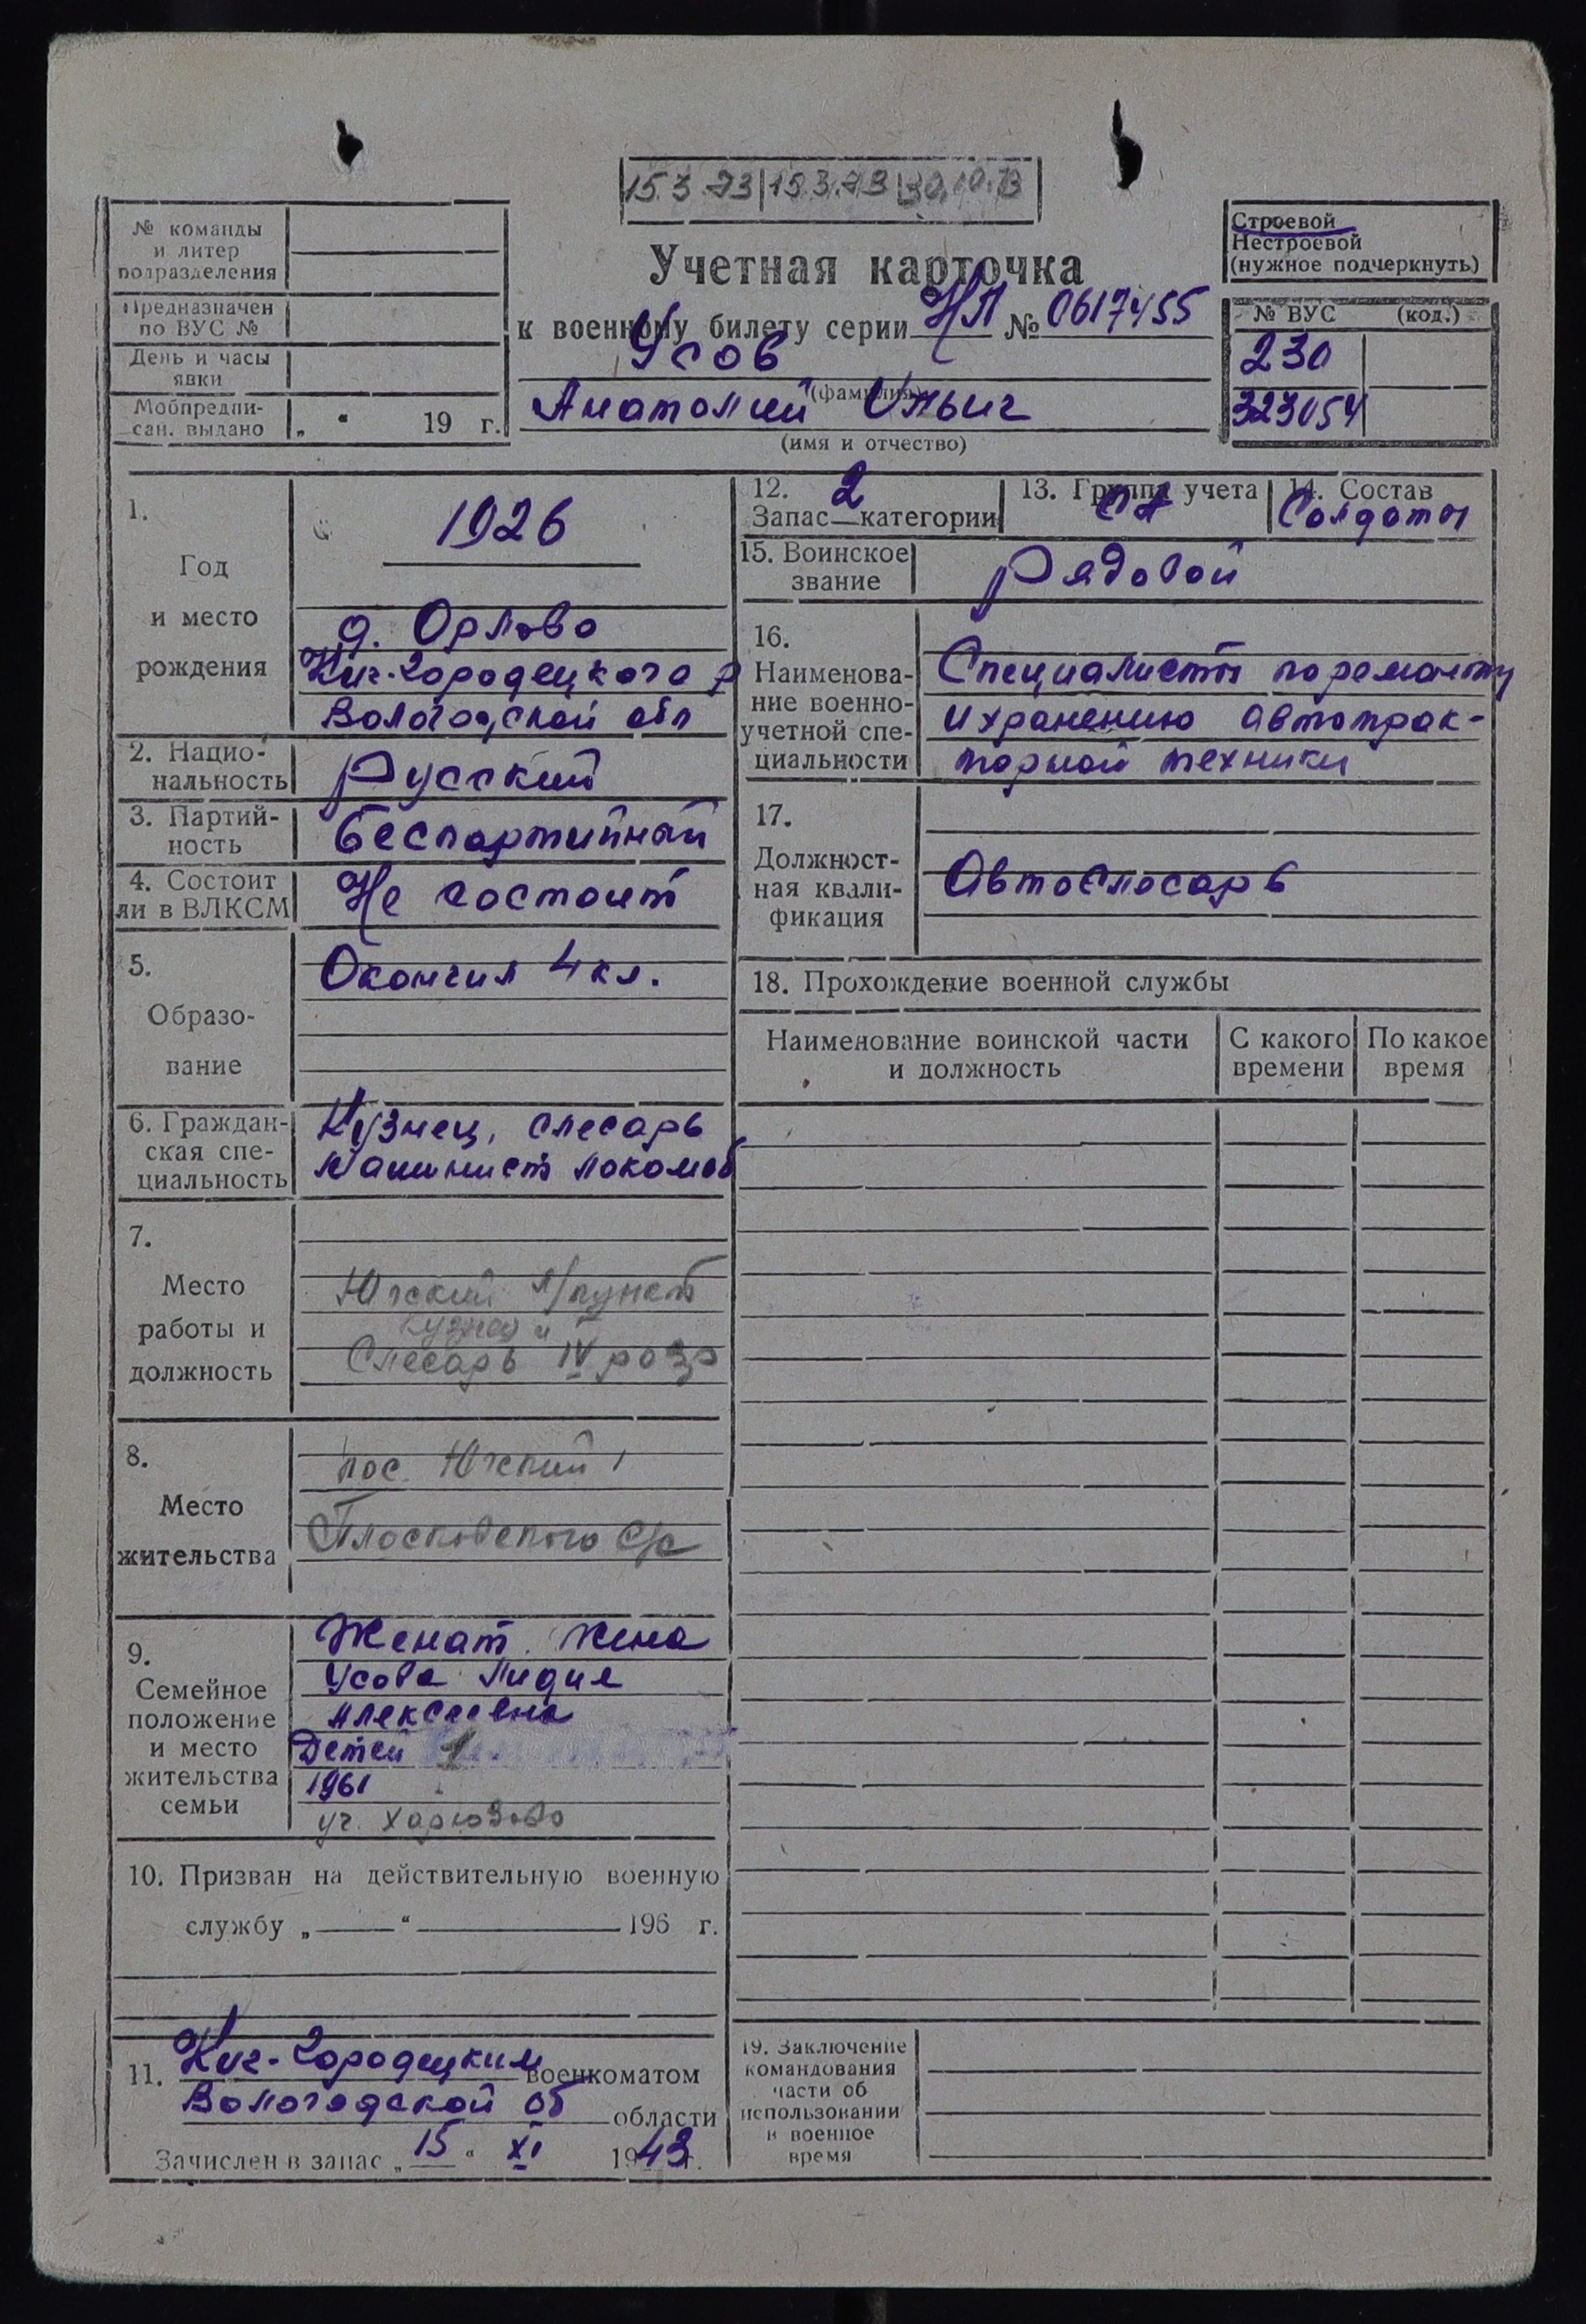 15.3.73 15.3.73 30.10.73
№ команды
и литер
подразделения
Предназначен
по ВУС №
День и часы
явки
Мобпредпи-
сан. выдано „ “ 19 г.
Учетная карточка
к военному билету серии НЛ № 0617455
Усов
(фамилия)
Анатолий Ильич
(имя и отчество)
Строевой
Нестроевой
(нужное подчеркнуть)
№ ВУС (код.)
230
323054
1.
Год
и место
рождения
1926
д. Орлово
Кич-Городецкого р
Вологодской обл
2. Нацио-
нальность
Русский
3. Партий-
ность
беспартийный
4. Состоит
ли в ВЛКСМ
Не состоит
5.
Образо-
вание
Окончил 4 кл.
6. Граждан-
ская спе-
циальность
Кузнец, слесарь
Машинист локомоб
7.
Место
работы и
должность
Югский л/пункт
Кузнец и
Слесарь IV разр
8.
Место
жительства
пос. Югский
Плосковского С/с
9.
Семейное
положение
и место
жительства
семьи
Женат. Жена
Усова Лидия
Алексеевна
Детей 1
1961
уч. Харюзово
10. Призван на действительную военную
службу „ “ 196 г.
11. Кич-Городецким военкоматом
Вологодской об области
Зачислен в запас „ 15 “ XI 1943 г.
12. 2
Запас—категории
13. Группа учета
СА
14. Состав
Солдаты
15. Воинское
звание
Рядовой
16.
Наименова-
ние военно-
учетной спе-
циальности
Специалисты по ремонту
и хранению автотрак-
торной техники
17.
Должност-
ная квали-
фикация
Автослесарь
18. Прохождение военной службы
Наименование воинской части
и должность
С какого
времени
По какое
время
19. Заключение
командования
части об
использовании
в военное
время